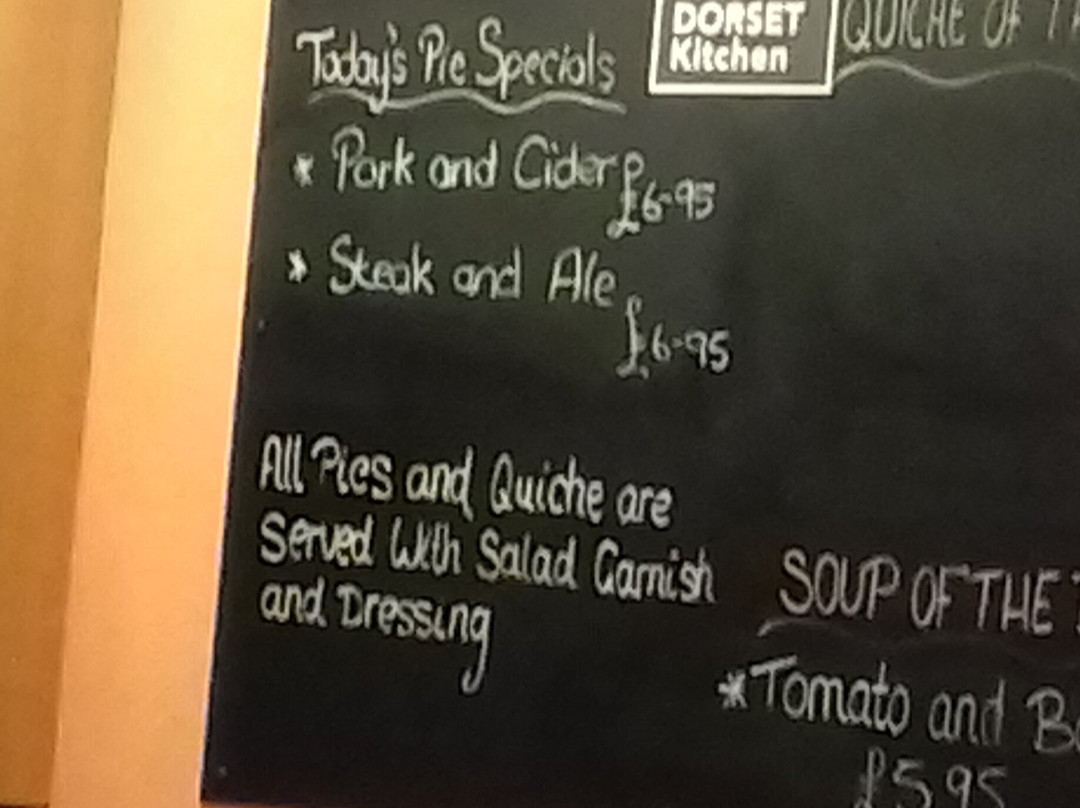 Today's Pie Specials
* Pork and Cider £6-95
* Steak and Ale
£6-95
All Pies and Quiche are
Served With Salad Garnish
and Dressing
DORSET
Kitchen
QUICHE OF
SOUP OF THE
*Tomato and
£5.95